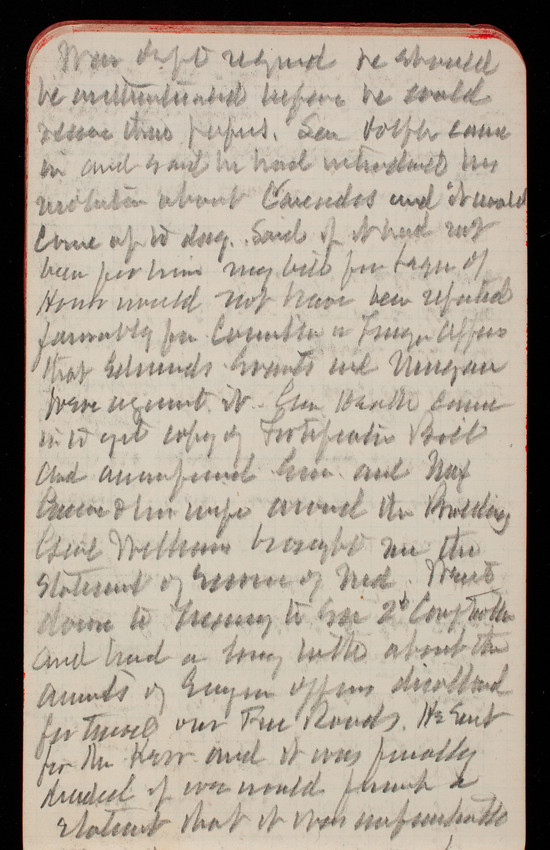 War dept agreed he should
be authenticated before he could
receive these papers. Sen Dolph came
in and said he had introduced my
resolution about Cascades and it would
come up to day. Said if it had not
been for him my bill for Legn of
Honor would not have been reported
favorably for Committee on Foreign Affairs
that Edmunds Evarts and Morgan
were against it. Gen Heath came
in to get copy of Fortification Bill
and accompanied him and
& his wife around the Building
Col Williams brought me the
statement of of Md. Went
down to Treasury to see 2d Comptroller
and had a long talk about the
accounts of Engineer officers disallowed
for travel over Free Roads. He sent
for Mr Kerr and it was finally
decided if we would furnish a
statement that it was impracticable